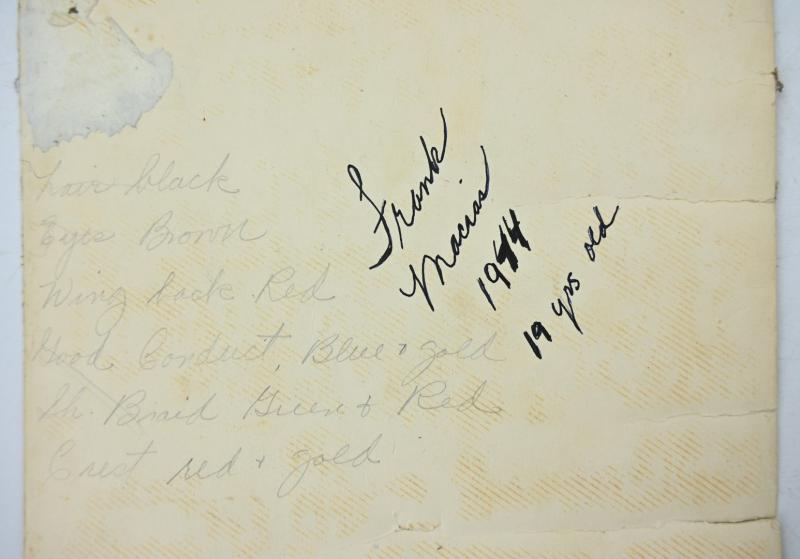 hair black
Eyes Brown
Wing back Red
Good Conduct, Blue & gold
Sh. Braid Green & Red
Crest red & gold
Frank
Macias
1944
19 yrs old